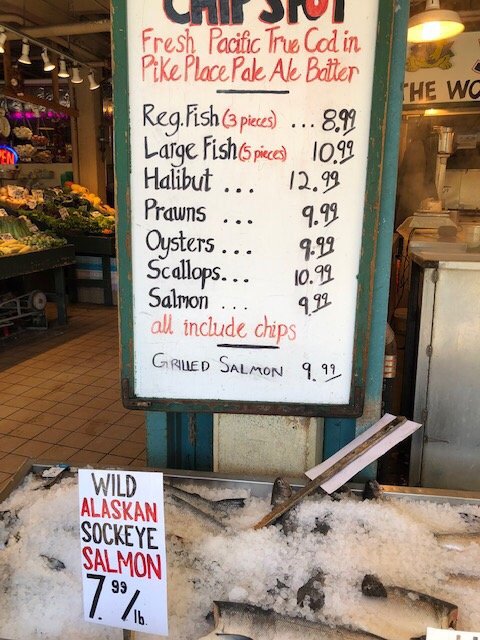 CHIP SPOT
Fresh Pacific True Cod in
Pike Place Pale Ale Batter
Reg. Fish (3 pieces) ... 8.99
Large Fish (5 pieces) 10.99
Halibut ... 12.99
Prawns ... 9.99
Oysters ... 9.99
Scallops... 10.99
Salmon ... 9.99
all include chips
GRILLED SALMON 9.99
THE WO
WILD
ALASKAN
SOCKEYE
SALMON
7.99/lb.